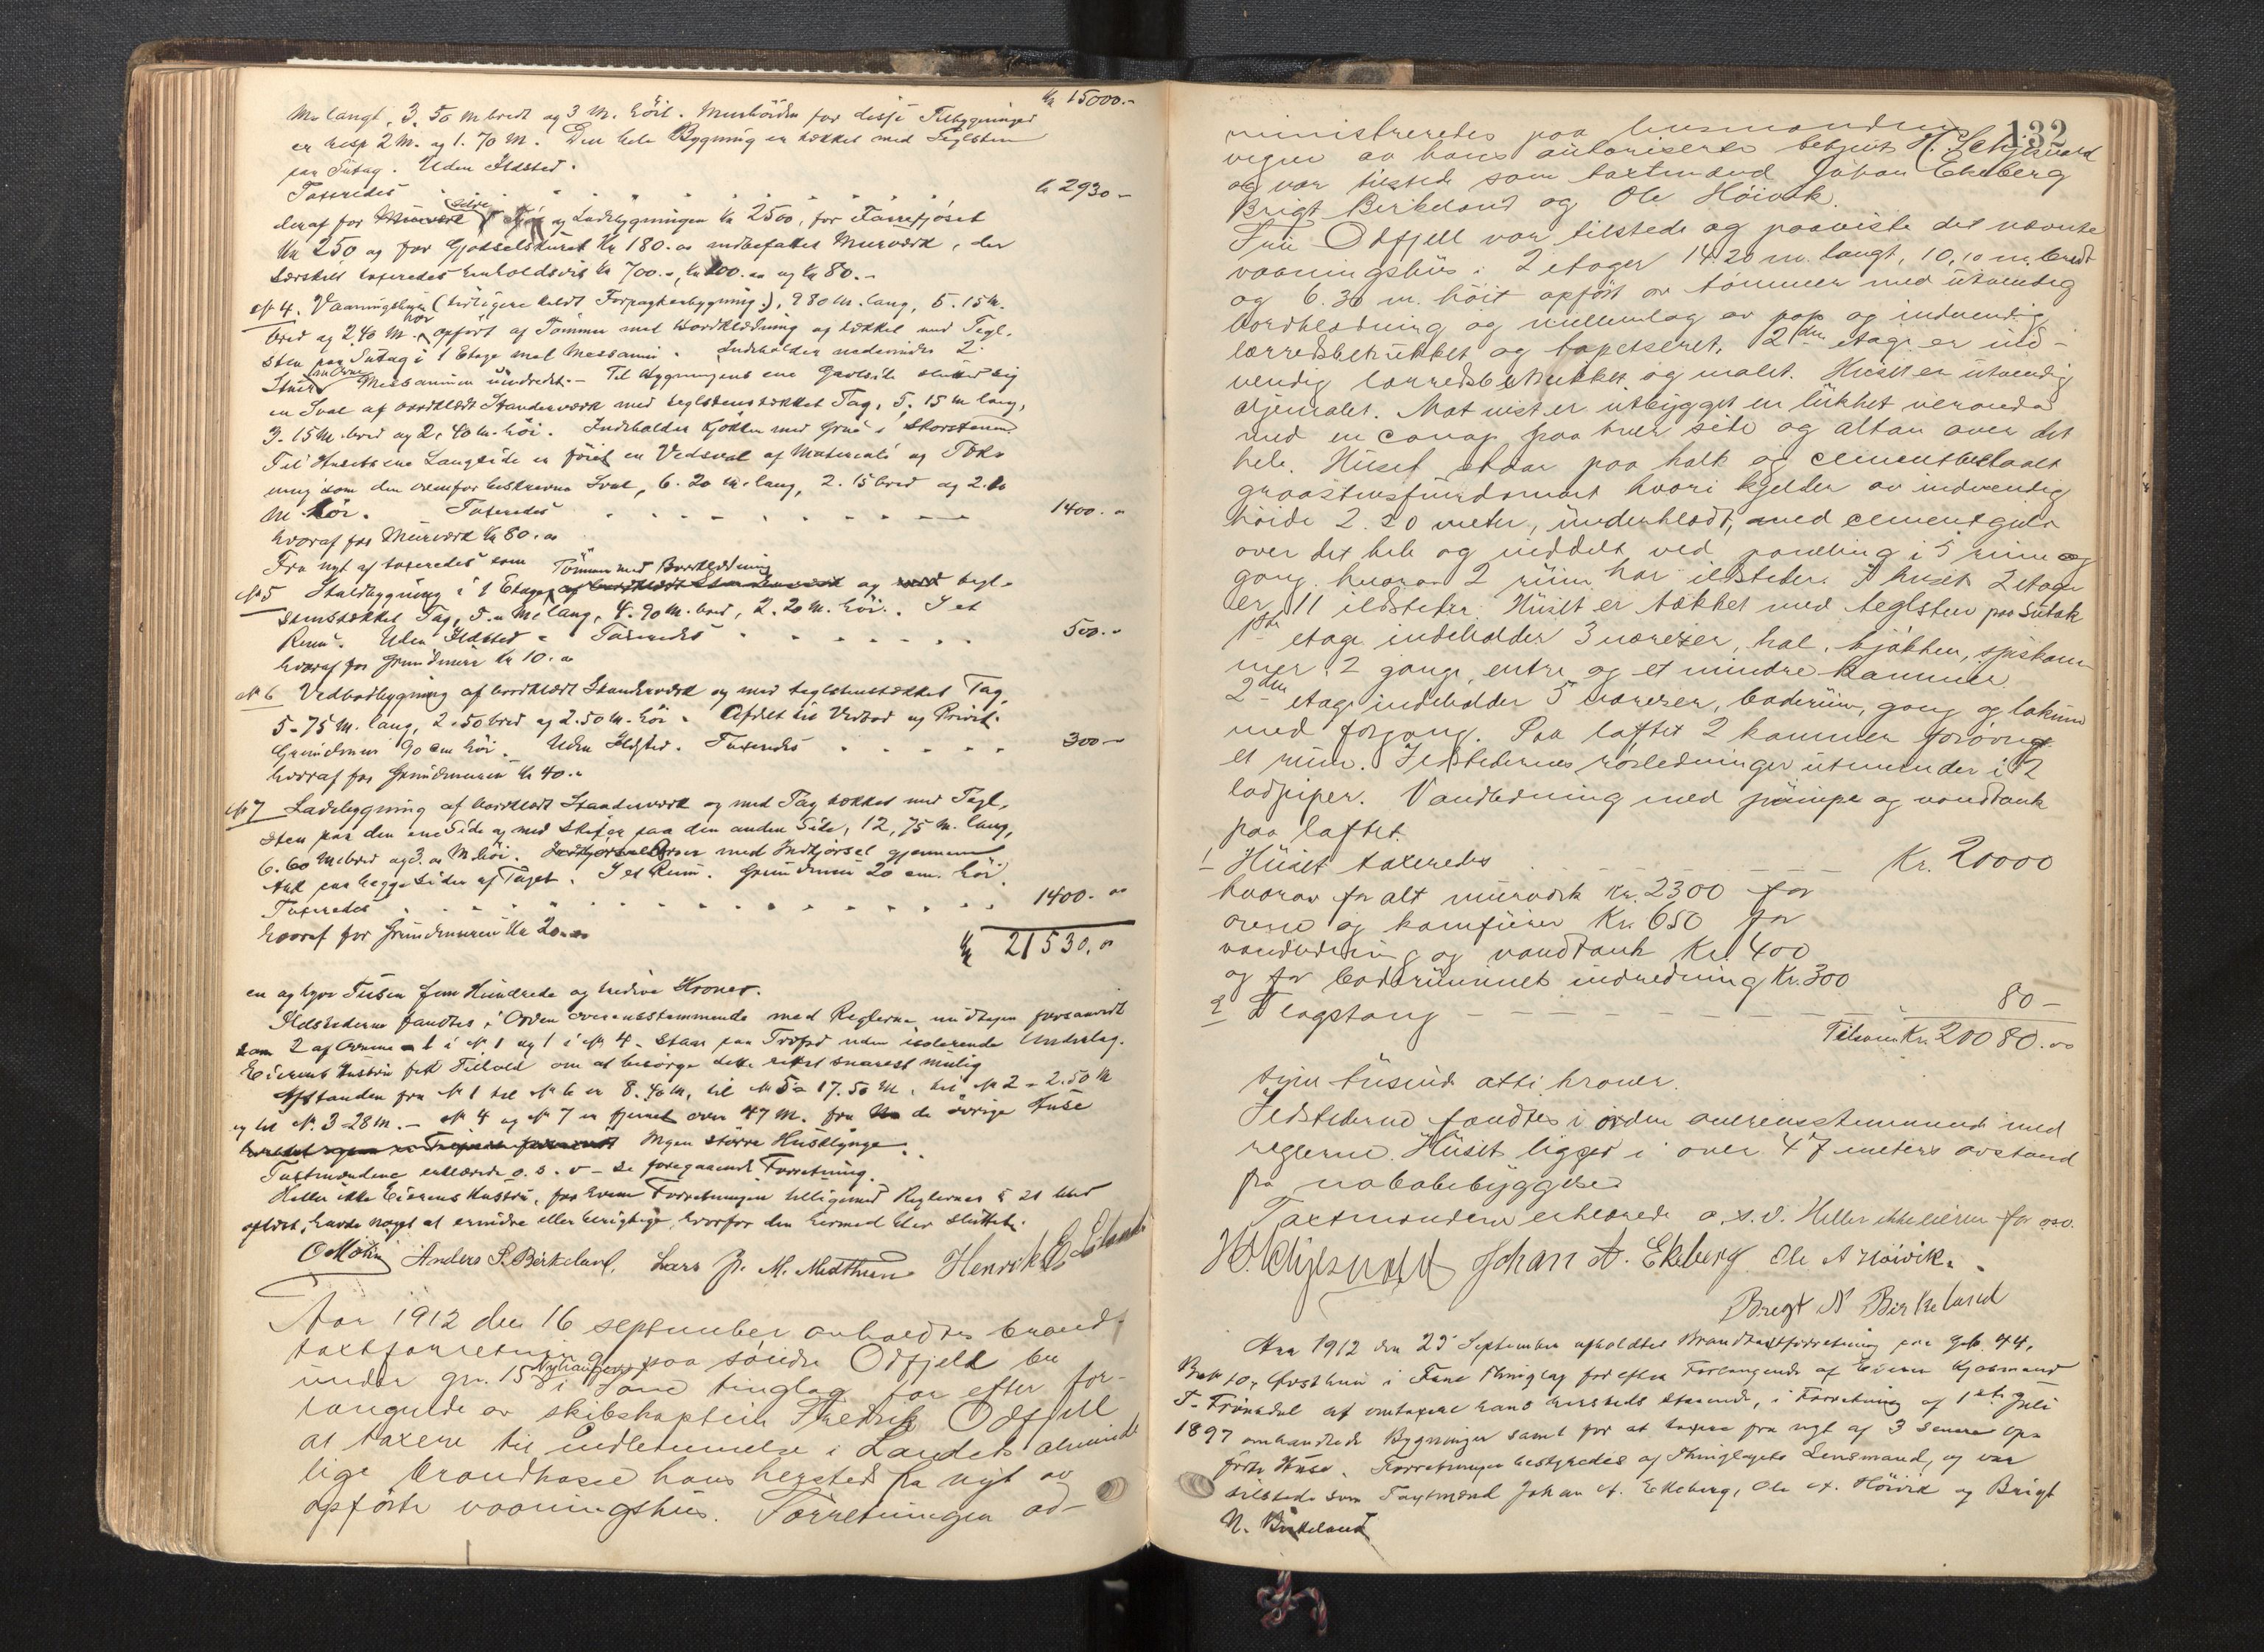 Kr 15000.-
M. langt, 3.50 M bredt og 3 M. höit. Murhöiden for disse Tilbygninger
er resp 2 M. og 1.70 M. Den hele Bygning er tækket med Teglsten
paa Sutag. Uden Ildsted.
Taxeredes " " " " " " " kr 2930 -
deraf for og Ladebygningen Kr 2500, for Faarefjöset
Kr 250 og for Gjödselskuret Kr 180.00 indbefattet Murværk, der
særskilt taxeredes henholdsvis Kr 700.-, Kr 100.00 og Kr 80.-
№ 4. Vaaningshus (tidligere kaldt Forpagterbygning), 9 80 M. lang, 5.15 M.
bred og 2,40 M. hör opfört af Tömmer med Bordklædning og tækket med Tegl-
sten paa Sutag i 1 Etage med Messanin. Indeholder nedenunder 2
Stuer Messaninen uindredet.- Til Bygningens ene Gavlside slutter sig
en Sval af bordklædt Standerværk med teglstenstækket Tag, 5,15 M lang,
3.15 M. bred og 2,40 M. höi. Indeholder Kjökken med Grue i Skorstenen.
Til Husets ene Langside er föiet en Vedsval af Materiale og Tæk-
ning som den ovenfor beskrevne Sval, 6.20 M. lang, 2.15 bred og 2.10
M. höi. Taxeredes . . . . . . . . 1400.00
hvoraf for Murværk Kr 80.00
Fra nyt af taxeredes som
Tömmer med Bordklædning
№ 5 Staldbygning i 1 Etage af bordklædt Standerværk og med tegl-
stenstækket Tag, 5.00 M. lang, 4.90 M. bred, 2.20 M. höi. I et
Rum. Uden Ildsted. Taxeredes . . . . . . 500.00
hvoraf for Grundmur Kr 10.00
№ 6 Vedbodbygning af bordklædt Standerværk og med teglstenstækket Tag,
5.75 M. lang, 2.50 bred og 2.50 M. höi. Afdelt til Vedbod og Privet.
Grundmur 90 cm höi. Uden Ildsted. Taxeredes . . . . . 300 -
hvoraf for Grundmuren Kr 40.00
№ 7 Ladebygning af bordklædt Standerværk og med Tag tækket med Tegl-
sten paa den ene Side og med Skifer paa den anden Side, 12,75 M. lang,
6.60 M. bred og 3.00 M. höi. med Indkjörsel gjennem
Ark paa begge Sider af Taget. I et Rum. Grundmur 20 cm. höi.
Taxeredes . . . . . . . . . . 1400.00
hvoraf for Grundmuren Kr 20.00
Kr 21530.00
en og tyve Tusen fem Hundrede og tredive Kroner.
Ildstederne fandtes i Orden overensstemmende med Reglerne undtagen forsaavidt
som 2 af Ovnene - 1 i № 1 og 1 i № 4 - staar paa Træfod uden isolerende Underlag.
Eierens Hustru fik Tilhold om at besörge dette rettet snarest mulig
Afstanden fra № 1 til № 6 er 8.40 M, til № 5 17.50 M, til № 2 - 2.50 M
og til № 3 - 28 M. - № 4 og № 7 er fjernet over 47 M. fra de övrige Huse
Ingen större Husklynge.
Taxtmændene erklærede o.s.v - se foregaaende Forretning.
Heller ikke Eierens Hustru, for hvem Forretningen tilligemed Reglernes § 21 blev
oplæst, havde noget at erindre eller berigtige, hvorfor den hermed blev sluttet.
O Mohn Anders P. Birkeland, Lars M. Midthun Henrik
Aar 1912 den 16 september avholdtes brand-
taxtforretning paa söndre Odfjeld
under gn. 15 i Fane tinglag for efter for-
langende av skibskaptein Fredrik Odfjell
at taxere til indlemmelse i Landets alminde
lige brandkasse hans hersteds fra nyt av
opförte vaaningshus. Forretningen ad-
132
ministreredes paa lensmandens
vegne av hans autoriserte betjent H. Schjelderup
og var tilstede som taxtmænd Johan Ekeberg
Brigt Birkeland og Ole Höivik.
Fru Odfjell var tilstede og paaviste det nævnte
vaaningshus i 2 etager 14.20 m. langt, 10,10 m. bredt
og 6.30 m. höit opfört av tömmer med utvendig
bordklædning og mellemlag av pap og indvendig
lærredsbetrukket og tapetseret. 2den etage er ind-
vendig lærredsbetrukket og malet. Huset er utvendig
oljemalet. Mot vest er utbygget en lukket veranda
med en paa hver side og altan over det
hele. Huset staar paa kalk og cementbelaalt
graastensfundament hvori kjelder av indvendig
höide 2.20 meter, underklædt, med cementgulv
over det hele og inddelt ved paneling i 5 rum og
gang hvorav 2 rum har ildsteder. I husets 2 etager
er 11 ildsteder. Huset er tækket med teglsten paa sutak
1ste etage indeholder 3 værelser, hal, kjökken, spiskam-
mer 2 gange, entre og et mindre kammer
2den etage indeholder 5 værelser, baderum, gang og lokum
med forgang. Paa loftet 2 kammer forövrig
et rum. Ildstedernes rörledninger utmunder i 2
ladpiper. Vandledning med pumpe og vandtank
paa loftet.
1 Huset taxeredes - - - - - Kr. 20000
hvorav for alt murværk Kr. 2300 for
ovne og komfurer Kr. 650 for
vandledning og vandtank Kr. 400
og for baderummets indredning Kr. 300
2 Flagstang - - - - - - 80 -
Tilsam. Kr. 20080.00
tyve tusind otti kroner.
Ildstederne fandtes i orden overensstemmende med
reglerne. Huset ligger i over 47 meters avstand
fra nabobebyggelse
Taxtmændene erklærede o.s.v. Heller ikke eieren for osv.
Johan A. Ekeberg Ole A Höivik.
Brigt N Birkeland
Aar 1912 den 25 September afholdtes Brandtaxtforretning paa Gnr. 44,
Brnr 10, i Fane Thinglag for efter Forlangende af Eieren Kjöbmand
T. Frönsdal at omtaxere hans hersteds staaende, i Forretning af 1ste Juli
1897 omhandlede Bygninger samt for at taxere fra nyt af 3 senere op-
förte Huse. Forretningen bestyredes af Thinglagets Lensmand, og var
tilstede som Taxtmænd Johan A. Ekeberg, Ole A. Höivik og Brigt
N. Birkeland